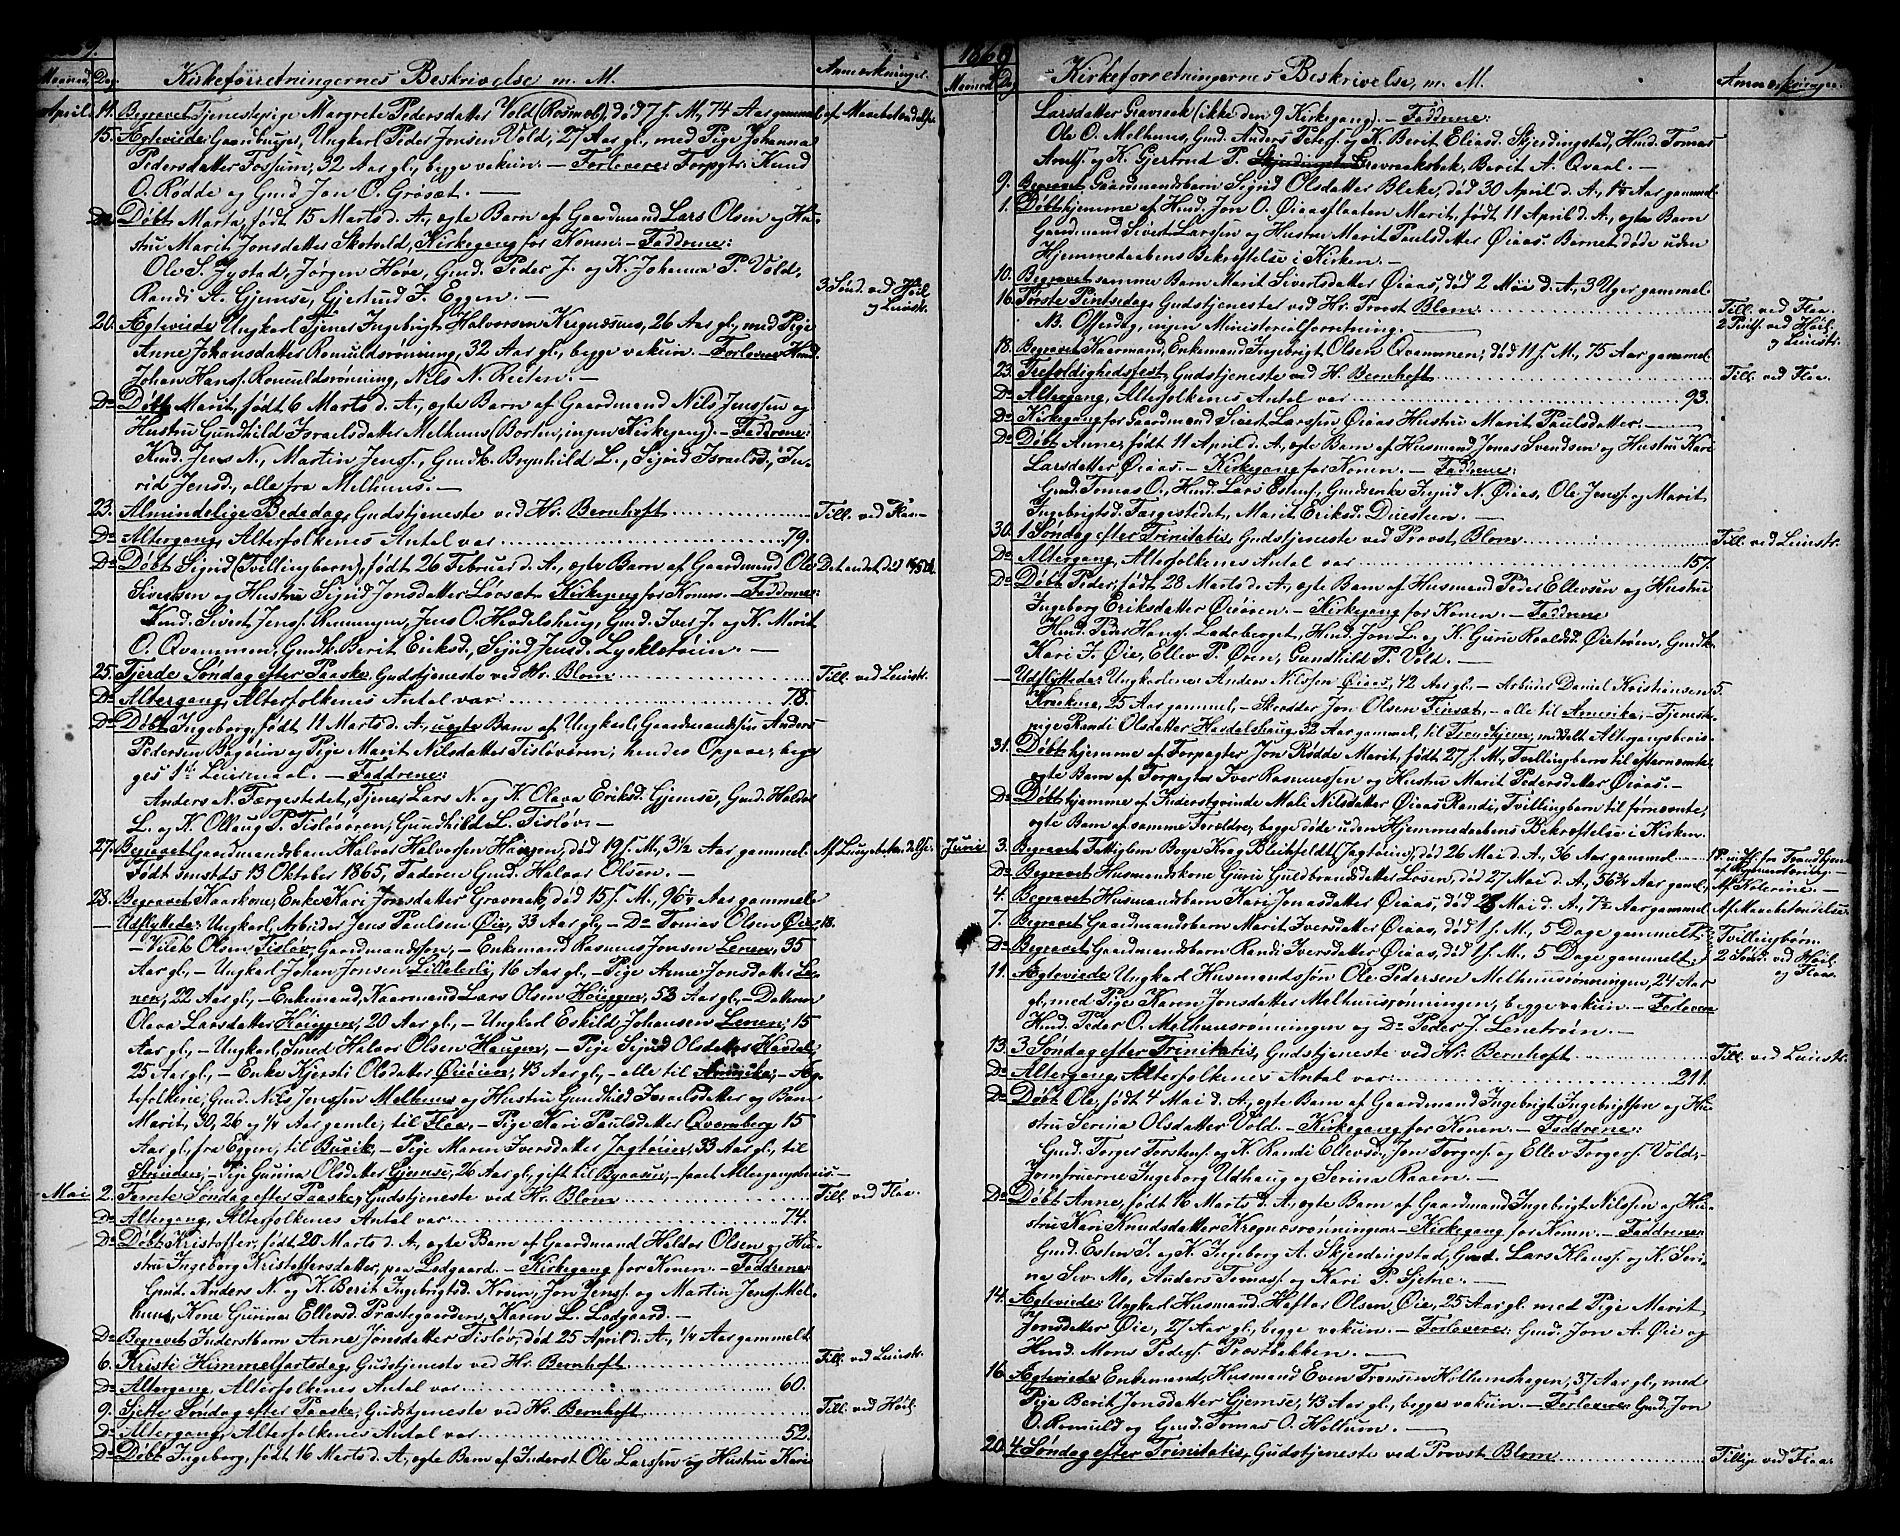 Maaned Dag Kirkeforretningernes Beskrivelse m. M. Anmærkninger.
April 14. Begravet Tjenestepige Margrete Pedersdatter Vold (Rosmæl), død 7 f. M., 74 Aar gammel af
15. Ægteviede Gaardbruger, Ungkarl Peder Jonsen Vold, 27 Aar gl., med Pige Johanna
Pedersdatter Fossum, 32 Aar gl., begge vakcin. — Forlovere: Forpagter Knud
O. Rødde og Gmd. Jon O. Grøsæt. —
Do Døbt Marta, født 15 Marts d. A., egte Barn af Gaardmand Lars Olsen og Hu-
stru Marit Jonsdatter Sketveld, Kirkegang for Konen. — Faddrene:
Ole S. Jystad, Jørgen Hove, Gmd. Peder J. og K. Johanna P. Vold,
Randi A. Gjemse, Gjertrud I. Eggen. —
3 Sønd. ved Høil.
og Leinstr.
20. Ægteviede Ungkarl Tjener Ingebrigt Halvorsen Kregnæsmo, 26 Aar gl., med Pige
Anne Johansdatter Romuldsrønning, 32 Aar gl., begge vakcin. — Forlovere Hmd.
Johan Hanss. Romuldsrønning, Nils N. Reiten. —
Do Døbt Marit, født 6 Marts d. A., egte Barn af Gaardmand Nils Jenssen og
Hustru Gundhild Israelsdatter Melhuus (Borten, ingen Kirkegang). — Faddrene:
Knd. Jens N., Martin Jenss., Gmdk. Brynhild L., Sigrid Israelsd., In-
rid Jensd., alle fra Melhuus. —
23. Almindelige Bededag, Gudstjeneste ved Hr. Bernhoft Till. ved Flaa —
Do Altergang, Alterfolkenes Antal var 79.
Do Døbt Sigrid (Tvillingbarn), født 26 Februar d. A., egte Barn af Gaardmand Ole Det andet død
Sivertsen og Hustru Sigrid Jonsdatter Løvset. Kirkegang for Konen. — Faddrene:
Kmd. Sivert Jenss. Rønningen, Jens O. Havdelshaug, Gmd. Iver J. og K. Marit
O. Qvammen, Gmdk. Berit Eriksd., Sigrid Jensd. Lykletøien. —
25. Fjerde Søndag efter Paaske, Gudstjeneste ved Hr. Blom Till. ved Leinstr.
Do Altergang, Alterfolkenes Antal var 78.
Do Døbt Ingeborg, født 11 Marts d. A., uegte Barn af Ungkarl, Gaardmandssøn Anders
Pedersen Bagøien og Pige Marit Nilsdatter Tisløvøren; hendes Opgave; beg-
ges 1ste Leiermaal. — Faddrene:
Anders N. Færgestedet, Tjener Lars N. og K. Olava Eriksd. Gjemse, Gmd. Haldor
L. og K. Ollaug P. Tisløvøren, Gundhild L. Tisløv. —
27. Begravet Gaardmandsbarn Halvor Halvorsen Haugen, død 19 f. M., 3½ Aar gammel.
Født Indsets 13 Oktober 1865, Faderen Gmd. Halvor Olsen. —
23. Begravet Kaarkone, Enke Kari Jonsdatter Gravrak, død 15 f. M., 96¼ Aar gammel
— Udflyttede: Ungkarl, Arbeider Jens Paulsen Øie, 33 Aar gl., — Do Tomas Olsen Øie, 18.
— Vilek Olsen Tisløv, Gaardmandssøn, — Enkemand Rasmus Jonsen Lenen, 35
Aar gl., — Ungkarl Johan Jonsen Lillelerli, 16 Aar gl., — Pige Anne Jonsdatter Le-
nen, 22 Aar gl., — Enkemand, Kaarmand Lars Olsen Høiggen, 53 Aar gl., — Datteren
Olava Larsdatter Høiggen, 20 Aar gl., — Ungkarl Eskild Johansen Lenen, 15
Aar gl., — Ungkarl, Smed Halvor Olsen Haugen, — Pige Sigrid Olsdatter Havdal
25 Aar gl., — Enke Kjersti Olsdatter Øiøien, 43 Aar gl., — alle til Amerika; — Æg-
tefolkene, Gmd. Nils Jenssen Melhuus og Hustru Gundhild Israelsdatter og Barn
Marit, 30, 26 og ¼ Aar gamle, til Flaa, — Pige Kari Paulsdatter Qvernberg 15
Aar gl., fra Eggen, til Buvik, — Pige Maren Iversdatter Jagtøien, 33 Aar gl., til
Strinden; — Pige Gunna Olsdatter Gjemse, 26 Aar gl., gift til Byaasen, — paa Altergangsbevis. —
Mai 2. Femte Søndag efter Paaske, Gudstjeneste ved Hr. Blom Till. ved Flaa.
Do Altergang, Alterfolkenes Antal var 74.
Do Døbt Kristoffer, født 20 Marts d. A., egte Barn af Gaardmand Haldor Olsen og Hu-
stru Ingeborg Kristoffersdatter, paa Lodgaard. — Kirkegang for Konen. — Faddrene
Gmd. Anders N. og K. Berit Ingebrigtsd. Kroen, Jon Jenss. og Martin Jenss. Mel-
huus, Kone Gurina Ellevsd. Præstegaarden, Karen L. Lodgaard. —
Do Begravet Inderstbarn Anne Jonsdatter Tisløv, død 25 April d. A., ¼ Aar gammelt
6. Kristi Himmelfartsdag, Gudstjeneste ved Hr. Bernhoft Till. ved Leinstr.
Do Altergang, Alterfolkenes Antal var 60.
9. Sjette Søndag efter Paaske, Gudstjeneste ved Hr. Bernhoft Till. ved Høil.
Do Altergang, Alterfolkenes Antal var 52.
Do Døbt Ingeborg, født 16 Marts d. A., egte Barn af Inderst Ole Larssen og Hustru Kari
Maaned Dag Kirkeforretningernes Beskrivelse, m. M. Anmærkninger.
Larsdatter Gravrak (ikke den 9 Kirkegang). — Faddrene:
Ole O. Melhuus, Gmd. Anders Peters. og K. Berit Eliasd. Skjerdingstad, Hmd. Tomas
Arnts. og K. Gjertrud P. Gravraksbak, Berit A. Qvaal. —
9. Begravet Gaardmandsbarn Sigrid Olsdatter Bleke, død 30 April d. A., Aar gammel
1. Døbt hjemme af Hmd. Jon O. Øiaasplaaten Marit, født 11 April d. A., egte Barn
Gaardmand Sivert Larssen og Hustru Marit Paulsdatter Øiaas. Barnet døde uden
Hjemmedaabens Bekræftelse i Kirken. —
10. Begravet samme Barn Marit Sivertsdatter Øiaas, død 2 Mai d. A., 3 Uger gammel
16. Første Pintsedag, Gudstjeneste ved Hr. Provst Blom Till. ved Flaa.
NB. Offerdag, ingen Ministerialforretning. — 2 Pints. ved Høil.
og Leinstr.
18. Begravet Kaarmand, Enkemand Ingebrigt Olsen Qvammen, død 11 f. M., 75 Aar gammel.
23. Trefoldighedsfest, Gudstjeneste ved H. Bernhoft Till. ved Flaa.
Do Altergang, Alterfolkenes Antal var 93.
Do Kirkegang for Gaardmand Sivert Larssen Øiaas Hustru Marit Paulsdatter. —
Do Døbt Anne, født 11 April d. A., egte Barn af Husmand Jonas Svendsen og Hustru Kari
Larsdatter Øiaas. — Kirkegang for Konen. — Faddrene:
Gmd. Tomas O., Hmd. Lars Estens., Gmdsenke Sigrid N. Øiaas, Ole Jenss. og Marit
Ingebrigtsd. Færgestedet, Marit Eriksd. Duesteen. —
30. 1 Søndag efter Trinitatis, Gudstjeneste ved Provst Blom Till. ved Leinstr.
Do Altergang, Alterfolkenes Antal var 157.
Do Døbt Peder, født 28 Marts d. A., egte Barn af Husmand Peder Ellevsen og Hustru
Ingeborg Eriksdatter Øiøren. — Kirkegang for Konen. — Faddrene
Hmd. Peder Hanss. Ladsberget, Hmd. Jon L. og K. Guru Roaldsd. Øietrøen, Gmdk.
Kari I. Øie, Ellev P. Øren, Gundhild P. Vold. —
— Udflyttede: Ungkarlene Anders Nilssen Øiaas, 42 Aar gl., — Arbeider Daniel Kristiansen 5.
Kroken, 25 Aar gammel, — Skrædder Jon Olsen Finsæt, — alle til Amerika; — Tjeneste-
pige Randi Olsdatter Havdelshaug, 32 Aar gammel, til Trondhjem, meddelt Altergangsbevis
31. Døbt hjemme af Forpagter Jon Rødde Marit, født 27 f. M., Tvillingbarn til efternevnte,
egte Barn af Forpagter Iver Rasmussen og Hustru Marit Pedersdatter Øiaas. —
Do Døbt hjemme af Inderstqvinde Mali Nilsdatter Øiaas Randi, Tvillingbarn til førnevnte,
egte Barn af samme Foreldre, begge døde uden Hjemmedaabens Bekræftelse i Kirken.
Juni 3. Begravet Fattiglem Boye Krog Bleikfeldt (Jagtøien), død 26 Mai d. A., 36 Aar gammel
Do Begravet Husmandskone Guru Guldbrandsdatter Loren, død 27 Mai d. A., 56¾ Aar gammel,
4. Begravet Husmandsbarn Kari Jonasdatter Øiaas, død 28 Mai d. A., Aar gammel
7. Begravet Gaardmandsbarn Marit Iversdatter Øiaas, død 1 f. M., 5 Dage gammelt Tvillingbørn.
Do Begravet Gaardmandsbarn Randi Iversdatter Øiaas, død 1 f. M., 5 Dage gammelt. 2 Sønd. ved Høil.
og Flaa.
11. Ægteviede Ungkarl Husmandssøn Ole Pedersen Melhuusrønningen, 24 Aar
gl., med Pige Karen Jonsdatter Melhuusrønningen, begge vakcin. — Forlovere
Hmd. Peder O. Melhuusrønningen og Do Peder J. Lenetrøen. —
13. 3 Søndag efter Trinitatis, Gudstjeneste ved Hr. Bernhoft Till. ved Leinstr.
Do Altergang, Alterfolkenes Antal var 211.
Do Døbt Ole, født 4 Mai d. A., egte Barn af Gaardmand Ingebrigt Ingebrigtsen og Hu-
stru Serina Olsdatter Vold. — Kirkegang for Konen. — Faddrene:
Gmd. Torger Torstens. og K. Randi Ellevsd., Jon Torgers. og Ellev Torgers. Vold,
Jomfruerne Ingeborg Udhaug og Serina Raaen. —
Do Døbt Anne, født 16 Marts d. A., egte Barn af Gaardmand Ingebrigt Nilssen og Hu-
stru Kari Knudsdatter Kregnæsrønningen — Kirkegang for Konen. — Faddrene
Gmd. Esten I. og K. Ingeborg A. Skjerdingstad, Gmd. Lars Klauss. og K. Seri-
na Siv. Mo, Anders Tomass. og Kari P. Sjetne. —
14. Ægteviede: Ungkarl Husmand Hefter Olsen Øie, 25 Aar gl. med Pige Marit
Jonsdatter Øie, 27 Aar gl., begge vakcin. — Forlovere: Gmd. Jon A. Øie og
Hmd. Mons Peders. Prestbakken. —
16. Ægteviede Enkemand, Husmand Even Tronsen Hollumshagen, 37 Aar gl., med
Pige Berit Jonsdatter Gjemse, 43 Aar gl., begge vakcin. — Forlovere Gmd. Jon
O. Romuld og Gmd. Tomas O. Hollum. —
20. 4 Søndag efter Trinitatis, Gudstjeneste ved Provst Blom Tillige ved Flaa.